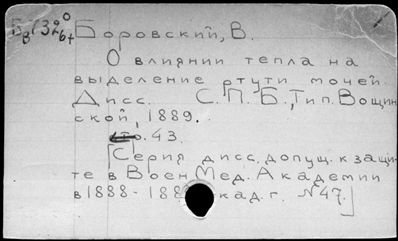 Боровский, В.
О влиянии тепла на
выделение ртути мочей.
Дисс. С.П.Б., Тип. Вощин
ской, 1889.
43.
[Серия дисс. допущ. к защи-
те в Воен. Мед. Академии
в 1888-188 кад. г. №47.]